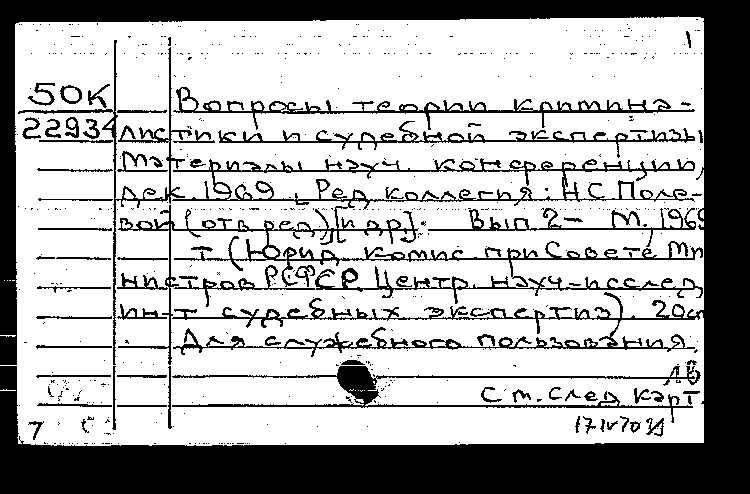 1
50К Вопросы теории кримина-
22934 листики и судебной экспертизы
Материалы науч. конференции,
дек. 1969 Ред коллегия: НС Поле-
вой (отв ред), [и др]. Вып 2 - М., 1969
т (Юрид. комис. при Совете Ми
нистров РСФСР. Центр. науч-исслед
ин-т судебных экспертиз). 20см
Для служебного пользования
ЛВ
См. след карт.
7 17 IV 70